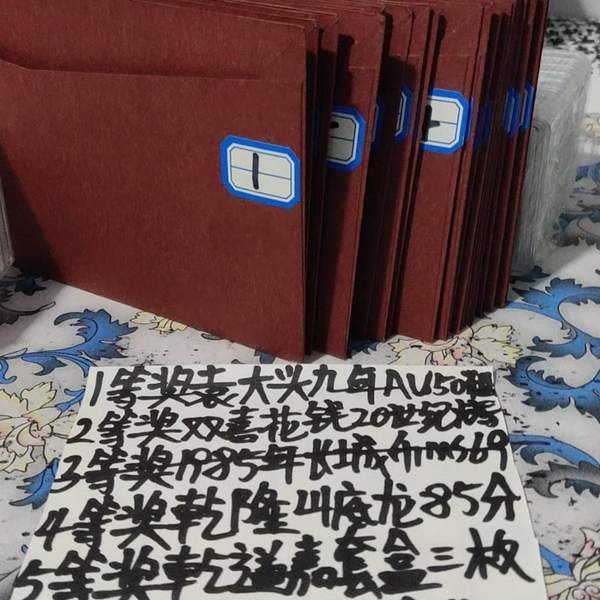 1
1等奖袁大头九年AU50粗
2等奖双喜花钱20世纪
3等奖1985年长城币ms69
4等奖乾隆山底龙85分
5等奖乾道嘉套盒三枚